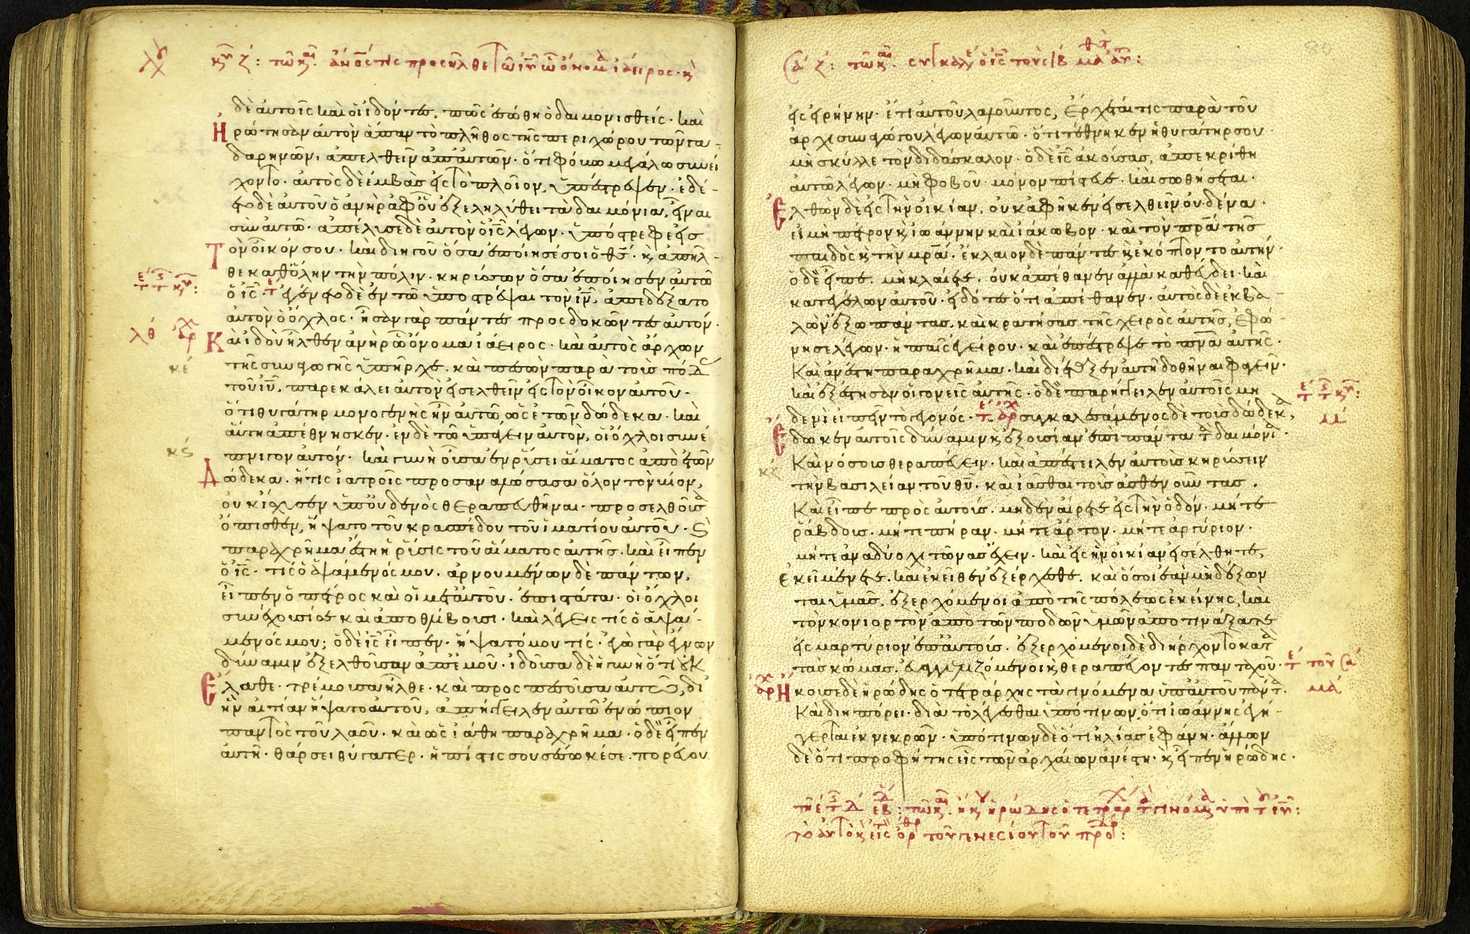 κυ ζ: τῶ κ. ἀνος τις προσῆλθε τῶ ιυ ὧ ὄνομα ἰάειρος· κ
δὲ αὐτοῖς καὶ οἱ ἰδόντες, πῶς ἐσώθη ὁ δαιμονισθείς· καὶ
Ἠρώτησαν αὐτὸν ἅπαν τὸ πλῆθος τῆς περιχώρου τῶν γα-
δαρηνῶν, ἀπελθεῖν ἀπ' αὐτῶν· ὅτι φόβω μεγάλω συνεί
χοντο· αὐτὸς δὲ ἐμβὰς εἰς τὸ πλοῖον, ὑπέστρεψεν· ἐδέ-
ετο δὲ αὐτοῦ ὁ ἀνὴρ ἀφ' οὗ ἐξεληλύθει τὰ δαιμόνια, εἶναι
σὺν αὐτῶ· ἀπέλυσε δὲ αὐτὸν ὁ ις λέγων· ὑπόστρεφε εἰς
Τὸν οἶκόν σου· καὶ διηγοῦ ὅσα ἐποίησέ σοι ὁ θς· κ ἀπῆλ-
θε καθ' ὅλην τὴν πόλιν· κηρύσσων ὅσα ἐποίησεν αὐτῶ
ὁ ις· ἐγένετο δὲ ἐν τῶ ὑποστρέψαι τὸν ιν, ἀπεδέξατο
αὐτὸν ὁ ὄχλος· ἦσαν γὰρ πάντες προσδοκῶντες αὐτόν·
λθ Καὶ ἰδοὺ ἦλθεν ἀνὴρ ὧ ὄνομα ἰάειρος· καὶ αὐτὸς ἄρχων
κε τῆς συναγωγῆς ὑπῆρχε· καὶ πεσὼν παρὰ τοὺς πόδ
τοῦ ιυ, παρεκάλει αὐτὸν εἰσελθεῖν εἰς τὸν οἶκον αὐτοῦ·
ὅτι θυγάτηρ μονογενὴς ἦν αὐτῶ ὡς ἐτῶν δώδεκα· καὶ
αὕτη ἀπέθνησκεν· ἐν δὲ τῶ ὑπάγειν αὐτὸν, οἱ ὄχλοι συνέ
κς πνιγον αὐτόν· καὶ γυνὴ οὖσα ἐν ῥύσει αἵματος ἀπὸ ἐτῶν
Δώδεκα· ἥτις ἰατροῖς προσαναλώσασα ὅλον τὸν βίον,
οὐκ ἴσχυσεν ὑπ' οὐδενὸς θεραπευθῆναι· προσελθοῦσα
ὄπισθεν, ἥψατο τοῦ κρασπέδου τοῦ ἱματίου αὐτοῦ· κ
παραχρῆμα ἔστη ἡ ῥύσις τοῦ αἵματος αὐτῆς· καὶ εἶπεν
ὁ ις· τίς ὁ ἁψάμενός μου· ἀρνουμένων δὲ πάντων,
εἶπεν ὁ πέτρος καὶ οἱ μετ' αὐτοῦ· ἐπιστάτα· οἱ ὄχλοι
συνέχουσί σε καὶ ἀποθλίβουσι· καὶ λέγεις τίς ὁ ἁψά-
μενός μου; ὁ δὲ ις εἶπεν· ἥψατό μου τίς· ἐγὼ γὰρ ἔγνων
δύναμιν ἐξελθοῦσαν ἀπ' ἐμοῦ· ἰδοῦσα δὲ ἡ γυνὴ ὅτι οὐκ
Ἔλαθε· τρέμουσα ἦλθε· καὶ προσπεσοῦσα αὐτῶ, δι'
ἣν αἰτίαν ἥψατο αὐτοῦ, ἀπήγγειλεν αὐτῶ ἐνώπιον
παντὸς τοῦ λαοῦ· καὶ ὡς ἰάθη παραχρῆμα· ὁ δὲ εἶπεν
αὐτῆ· θάρσει θύγατερ· ἡ πίστις σου σέσωκέ σε· πορεύου
ζ: τῶ κ. συγκαλε ὁ ις τοὺς ιβ μαθτ αυ:
εἰς εἰρήνην· ἔτι αὐτοῦ λαλοῦντος, ἔρχεταί τις παρὰ τοῦ
ἀρχισυναγώγου λέγων αὐτῶ· ὅτι τέθνηκεν ἡ θυγάτηρ σου·
μὴ σκύλλε τὸν διδάσκαλον· ὁ δὲ ις ἀκούσας, ἀπεκρίθη
αὐτῶ λέγων· μὴ φοβοῦ· μόνον πίστευε· καὶ σωθήσεται·
Ἐλθὼν δὲ εἰς τὴν οἰκίαν, οὐκ ἀφῆκεν εἰσελθεῖν οὐδένα·
εἰ μὴ πέτρον κ ἰωάννην καὶ ἰάκωβον· καὶ τὸν πρα τῆς
παιδὸς κ τὴν μρα· ἔκλαιον δὲ πάντες κ ἐκόπτοντο αὐτήν·
ὁ δὲ εἶπε· μὴ κλαίετε· οὐκ ἀπέθανεν ἀλλὰ καθεύδει· καὶ
κατεγέλων αὐτοῦ· εἰδότες ὅτι ἀπέθανεν· αὐτὸς δὲ ἐκβα-
λὼν ἔξω πάντας, καὶ κρατήσας τῆς χειρὸς αὐτῆς, ἐφώ-
νησε λέγων· ἡ παῖς ἐγείρου· καὶ ἐπέστρεψε τὸ πνα αὐτῆς·
Καὶ ἀνέστη παραχρῆμα· καὶ διέταξεν αὐτῆ δοθῆναι φαγεῖν·
καὶ ἐξέστησαν οἱ γονεῖς αὐτῆς· ὁ δὲ παρήγγειλεν αὐτοῖς μη
δενὶ εἰπεῖν τὸ γεγονός· συγκαλεσάμενος δὲ τοὺς δώδεκα,
μ Ἔδωκεν αὐτοῖς δύναμιν κ ἐξουσίαν ἐπὶ πάντα τὰ δαιμόνι·
κζ Καὶ νόσους θεραπεύειν· καὶ ἀπέστειλεν αὐτοὺς κηρύσσειν
τὴν βασιλείαν τοῦ θυ· καὶ ἰᾶσθαι τοὺς ἀσθενοῦντας·
Καὶ εἶπε πρὸς αὐτούς· μηδὲν αἴρετε εἰς τὴν ὁδόν· μήτε
ῥάβδους· μήτε πήραν· μήτε ἄρτον· μήτε ἀργύριον·
μήτε ἀνὰ δύο χιτῶνας ἔχειν· καὶ εἰς ἣν οἰκίαν εἰσέλθητε,
Ἐκεῖ μένετε· καὶ ἐκεῖθεν ἐξέρχεσθε· καὶ ὅσοι ἐὰν μὴ δέξων
ται ὑμᾶς, ἐξερχόμενοι ἀπὸ τῆς πόλεως ἐκείνης, καὶ
τὸν κονιορτὸν ἀπὸ τῶν ποδῶν ὑμῶν ἀποτινάξατε
εἰς μαρτύριον ἐπ' αὐτούς· ἐξερχόμενοι δὲ διήρχοντο κατὰ
τὰς κώμας, εὐαγγελιζόμενοι κ θεραπεύοντες πανταχοῦ·
μα Ἤκουσε δὲ ἡρώδης ὁ τετράρχης τὰ γινόμενα ὑπ' αὐτοῦ πάντ·
Καὶ διηπόρει· διὰ τὸ λέγεσθαι ὑπό τινων ὅτι ἰωάννης ἐγή-
γερται ἐκ νεκρῶν· ὑπό τινων δὲ ὅτι ἠλίας ἐφάνη· ἄλλων
δὲ ὅτι προφήτης εἷς τῶν ἀρχαίων ἀνέστη· κ εἶπεν ἡρώδης·
τῶ κ. ἤκ ἡρώδης ὁ τετραρχ τὰ γινόμ ὑπὸ τ ιυ:
τὸ αὐτὸ κ εἰς ὀρ τοῦ γενεσίου τοῦ προδρ: